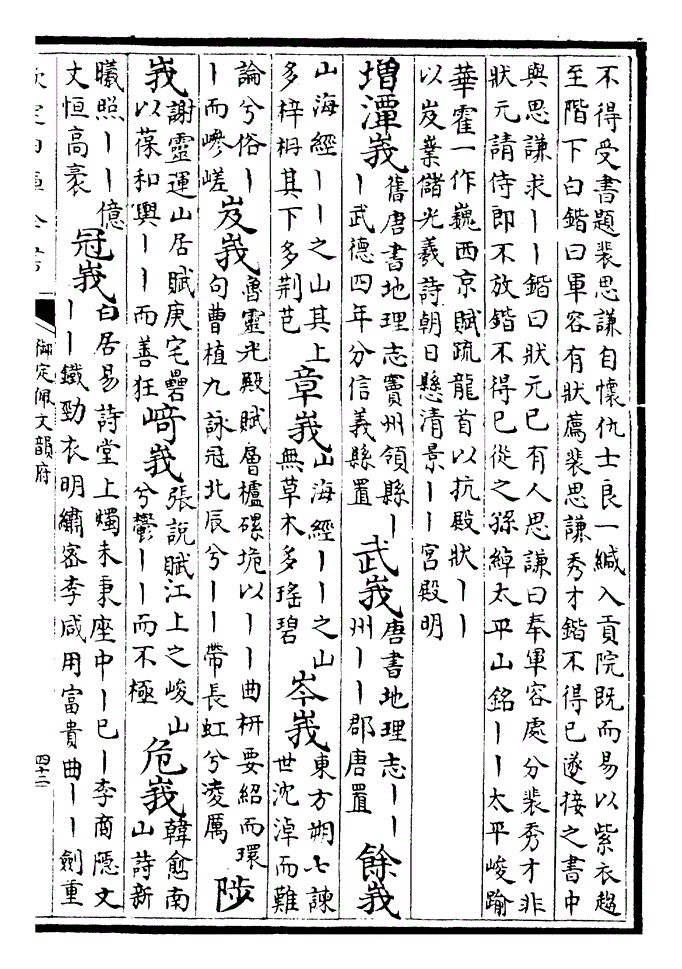 不得受書題裴思謙自懷仇士良一緘入貢院既而易以紫衣趨
至階下白鍇曰軍容有狀薦裴思謙秀才鍇不得已遂接之書中
與思謙求丨丨鍇曰狀元已有人思謙曰奉軍容處分裴秀才非
狀元請侍郎不放鍇不得已從之孫綽太平山銘丨丨太平峻踰
華霍一作巍西京賦疏龍首以抗殿狀丨丨
以岌業儲光羲詩朝日懸清景丨丨宮殿明
增潭峩舊唐書地理志竇州領縣丨
丨武德四年分信義縣置武峩唐書地理志丨丨
州丨丨郡唐置餘峩
山海經丨丨之山其上
多梓枏其下多荆芑章峩山海經丨丨之山
無草木多瑤碧岑峩東方朔七諫
世沈淖而難
論兮俗丨
丨而嵾嵯岌峩魯靈光殿賦層櫨磥垝以丨丨曲枅要紹而環
句曹植九詠冠北辰兮丨丨帶長虹兮凌厲陟
峩謝靈運山居賦庚宅礨
以葆和興丨丨而善狂﨑峩張説賦江上之峻山
兮鬱丨丨而不極危峩韓愈南
山詩新
曦照丨丨億
丈恒高褎冠峩白居易詩堂上燭未秉座中丨已丨李商隱文
丨丨鐵勁衣明繡密李咸用富貴曲丨丨劍重
欽定四庫全書
御定佩文韻府
四十二